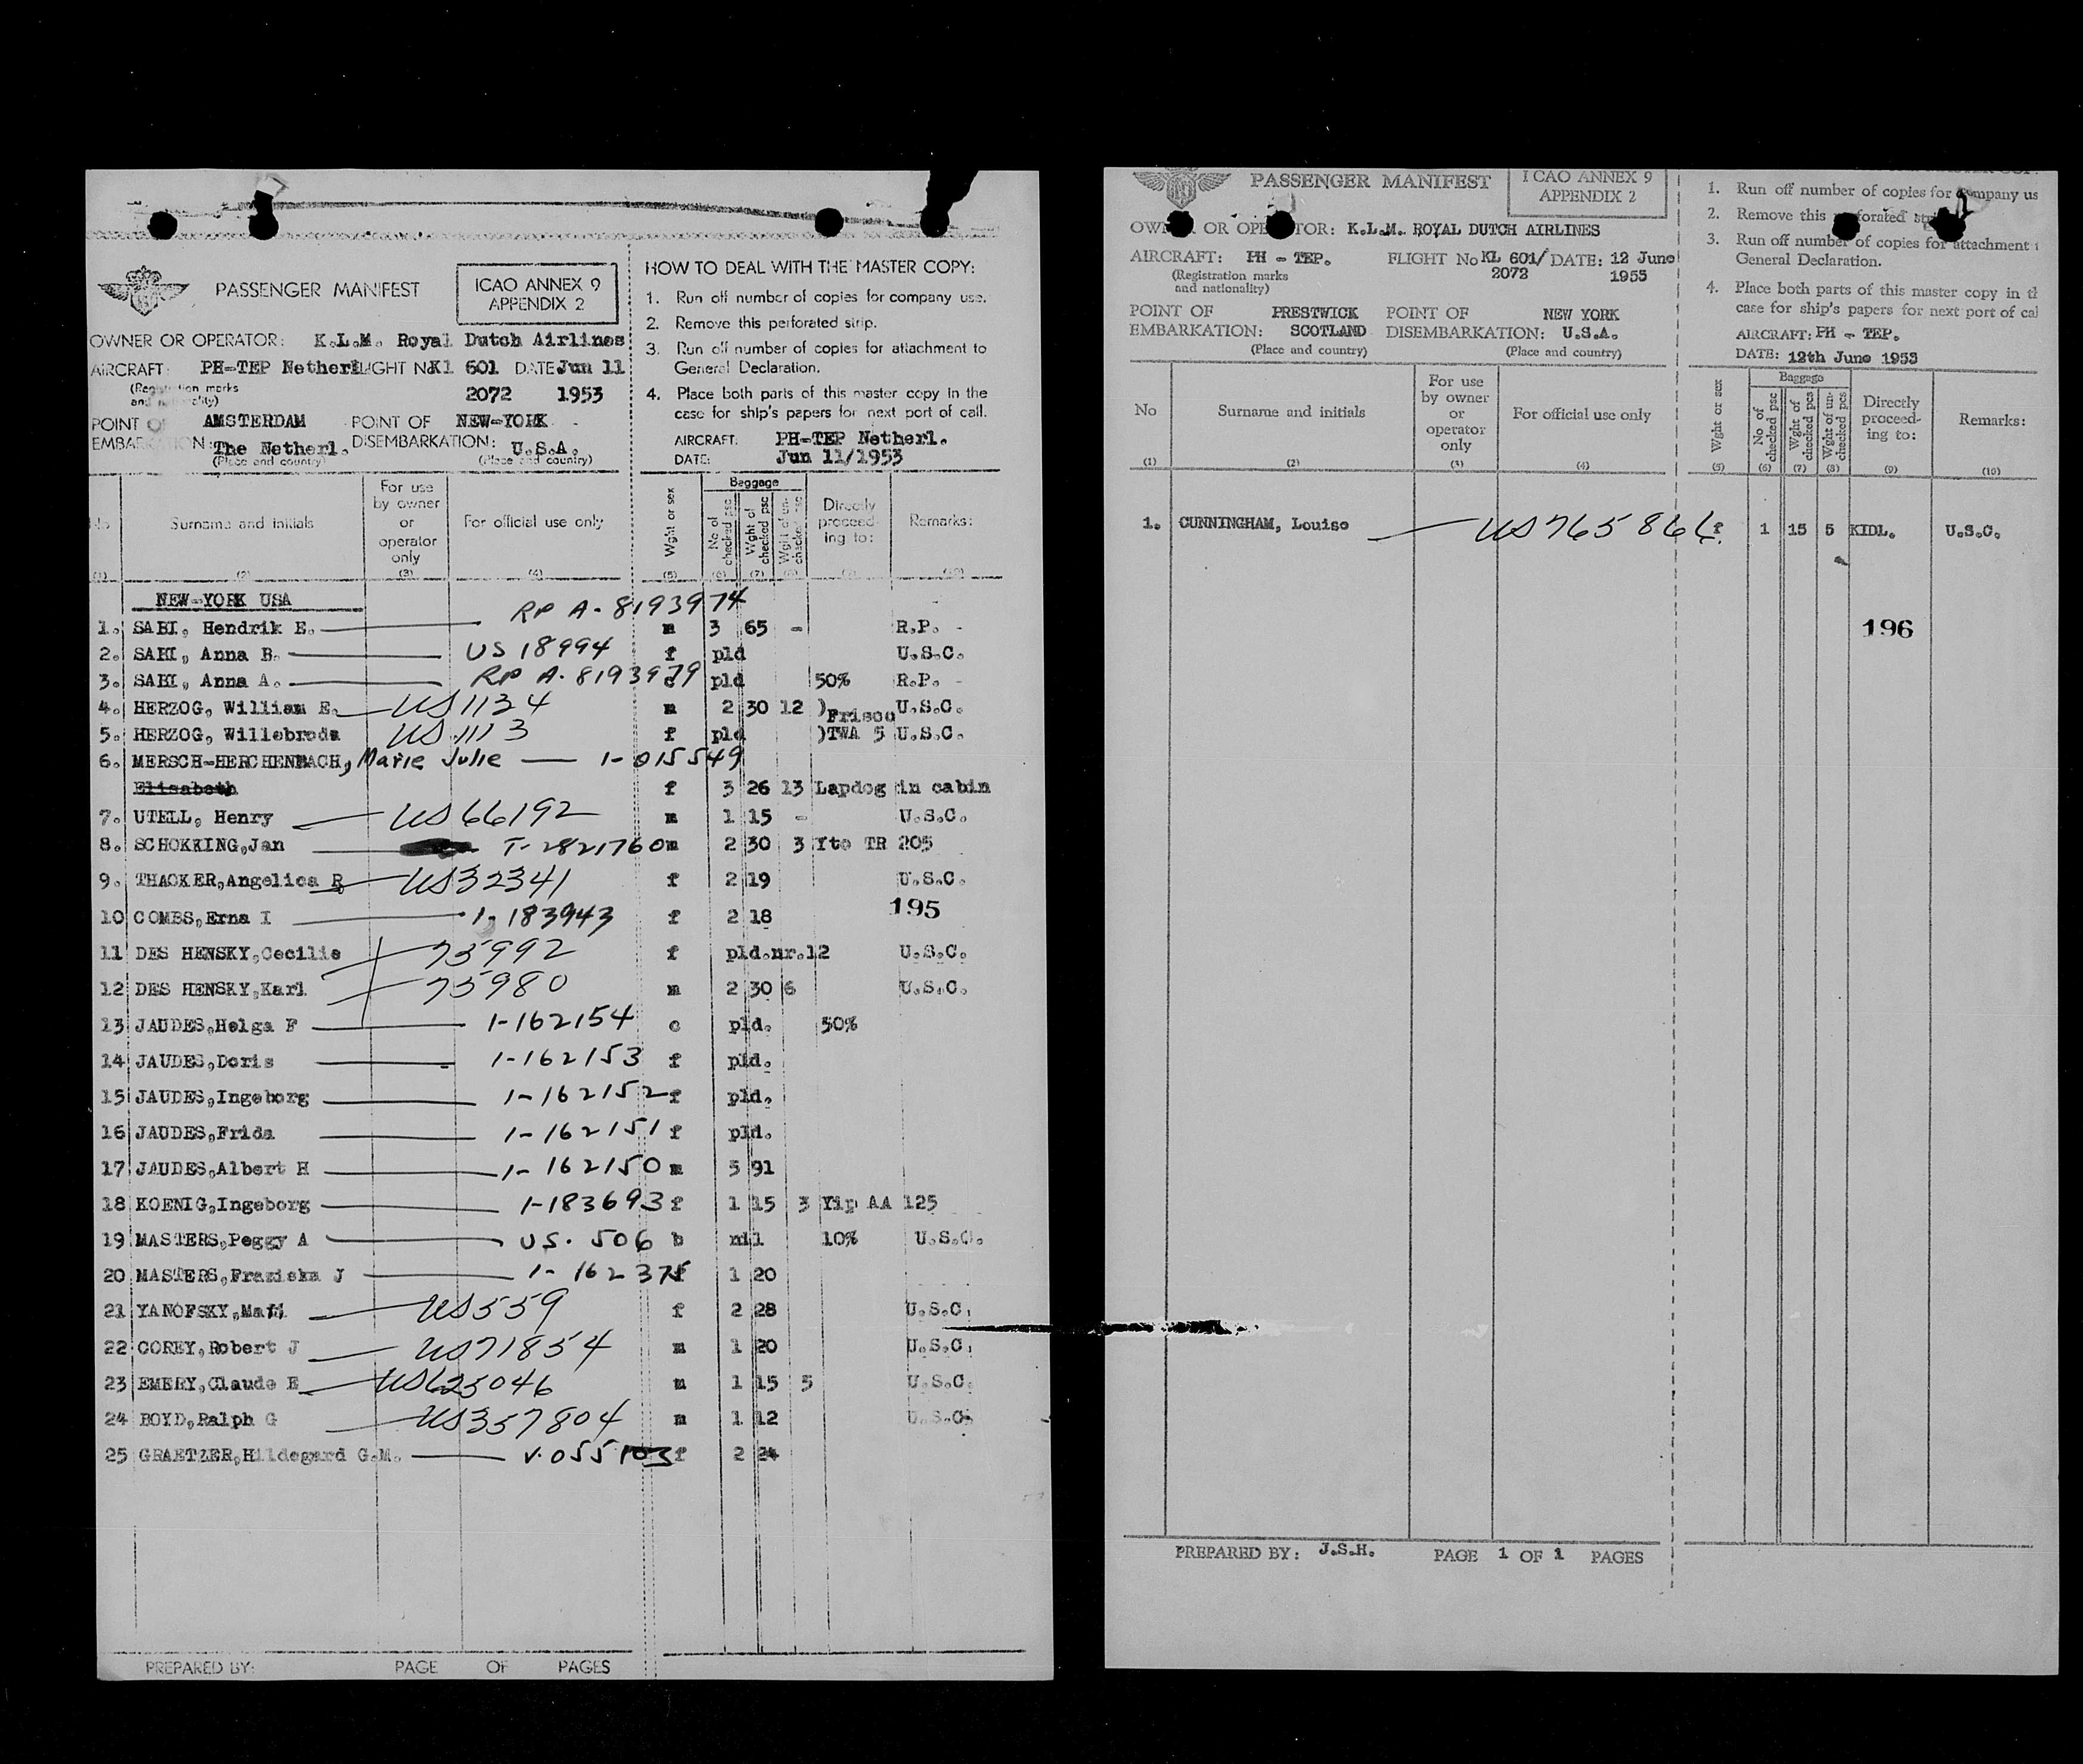 PASSENGER MANIFEST
ICAO ANNEX 9
APPENDIX 2
OWNER OR OPERATOR: K.L.M. Royal Dutch Airlines
AIRCRAFT: PH-TEP Netherl FLIGHT No Kl 601 DATE Jun 11
(Registration marks
and nationality)
2072 1953
POINT OF AMSTERDAM POINT OF NEW-YORK
EMBARKATION: The Netherl. DISEMBARKATION: U.S.A.
(Place and country) (Place and country)
HOW TO DEAL WITH THE MASTER COPY:
1. Run off number of copies for company use.
2. Remove this perforated strip.
3. Run off number of copies for attachment to
General Declaration.
4. Place both parts of this master copy in the
case for ship's papers for next port of call.
AIRCRAFT: PH-TEP Netherl.
DATE: Jun 11/1953
No
Surname and initials
For use
by owner
or
operator
only
For official use only
Wght or sex
Baggage
No of
checked psc
Wght of
checked psc
Wght of un-
checked psc
Directly
proceed-
ing to:
Remarks:
(1) (2) (3) (4) (5) (6) (7) (8) (9) (10)
NEW-YORK USA
1. SABI, Hendrik E. RP A-8193974 m 3 65 - R.P. -
2. SABI, Anna B. US 18994 f pld U.S.C.
3. SABI, Anna A. RP A-8193979 c pld 50% R.P. -
4. HERZOG, William E. US1134 m 2 30 12 )Frisco U.S.C.
5. HERZOG, Willebroda US1113 f pld )TWA 5 U.S.C.
6. MERSCH-HERCHENBACH, Marie Julie 1-015549
Elisabeth f 3 26 13 Lapdog in cabin
7. UTELL, Henry US66192 m 1 15 - U.S.C.
8. SCHOKKING,Jan T-2821760 m 2 30 3 Yto TR 205
9. THACKER,Angelica R US32341 f 2 19 U.S.C.
10 COMBS,Erna I 1-183943 f 2 18
195
11 DES HENSKY,Cecilie 75992 f pld.nr.12 U.S.C.
12 DES HENSKY,Karl 75980 m 2 30 6 U.S.C.
13 JAUDES,Helga F 1-162154 c pld. 50%
14 JAUDES,Doris 1-162153 f pld.
15 JAUDES,Ingeborg 1-162152 f pld.
16 JAUDES,Frida 1-162151 f pld.
17 JAUDES,Albert H 1-162150 m 5 91
18 KOENIG,Ingeborg 1-183693 f 1 15 3 Yip AA 125
19 MASTERS,Peggy A US. 506 b nil 10% U.S.C.
20 MASTERS,Fraziska J 1-162375 f 1 20
21 YANOFSKY, US559 f 2 28 U.S.C.
22 COREY,Robert J US71854 m 1 20 U.S.C.
23 EMERY,Claude E US625046 m 1 15 5 U.S.C.
24 BOYD,Ralph G US357804 m 1 12 U.S.C.
25 GRAETZER,Hildegard G.M. V.055103 f 2 24
PREPARED BY: PAGE OF PAGES
PASSENGER MANIFEST
ICAO ANNEX 9
APPENDIX 2
OWNER OR OPERATOR: K.L.M. ROYAL DUTCH AIRLINES
AIRCRAFT: PH - TEP. FLIGHT No KL 601/ DATE: 12 June
(Registration marks
and nationality)
2072 1953
POINT OF PRESTWICK POINT OF NEW YORK
EMBARKATION: SCOTLAND DISEMBARKATION: U.S.A.
(Place and country) (Place and country)
1. Run off number of copies for company us
2. Remove this perforated
3. Run off number of copies for attachment
General Declaration.
4. Place both parts of this master copy in th
case for ship's papers for next port of cal
AIRCRAFT: PH - TEP.
DATE: 12th June 1953
No
Surname and initials
For use
by owner
or
operator
only
For official use only
Wght or sex
Baggage
No of
checked psc
Wght of
checked pcs
Wght of un-
checked pcs
Directly
proceed-
ing to:
Remarks:
(1) (2) (3) (4) (5) (6) (7) (8) (9) (10)
1. CUNNINGHAM, Louise US765866 f. 1 15 5 KIDL. U.S.C.
196
PREPARED BY: J.S.H. PAGE 1 OF 1 PAGES